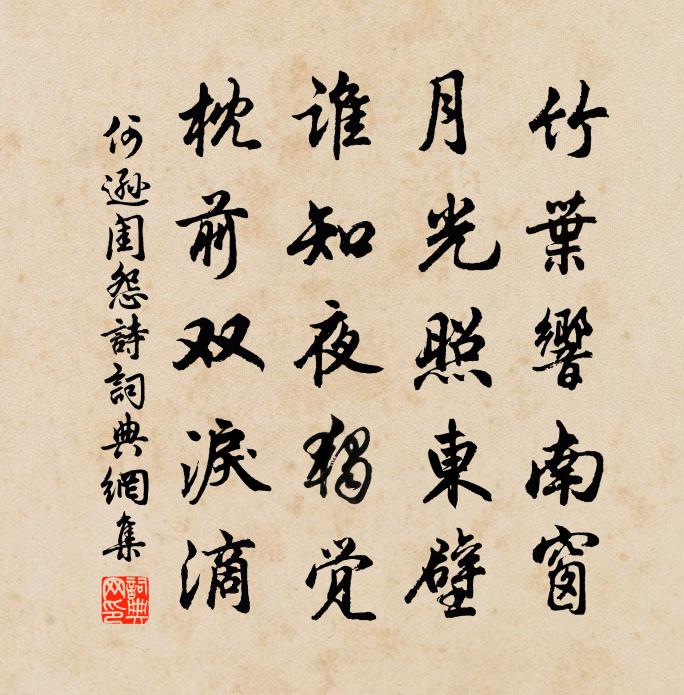 竹葉響南窗
月光照東壁
谁知夜独觉
枕前双淚滴
何遜閨怨詩詞典網集
詞典網印